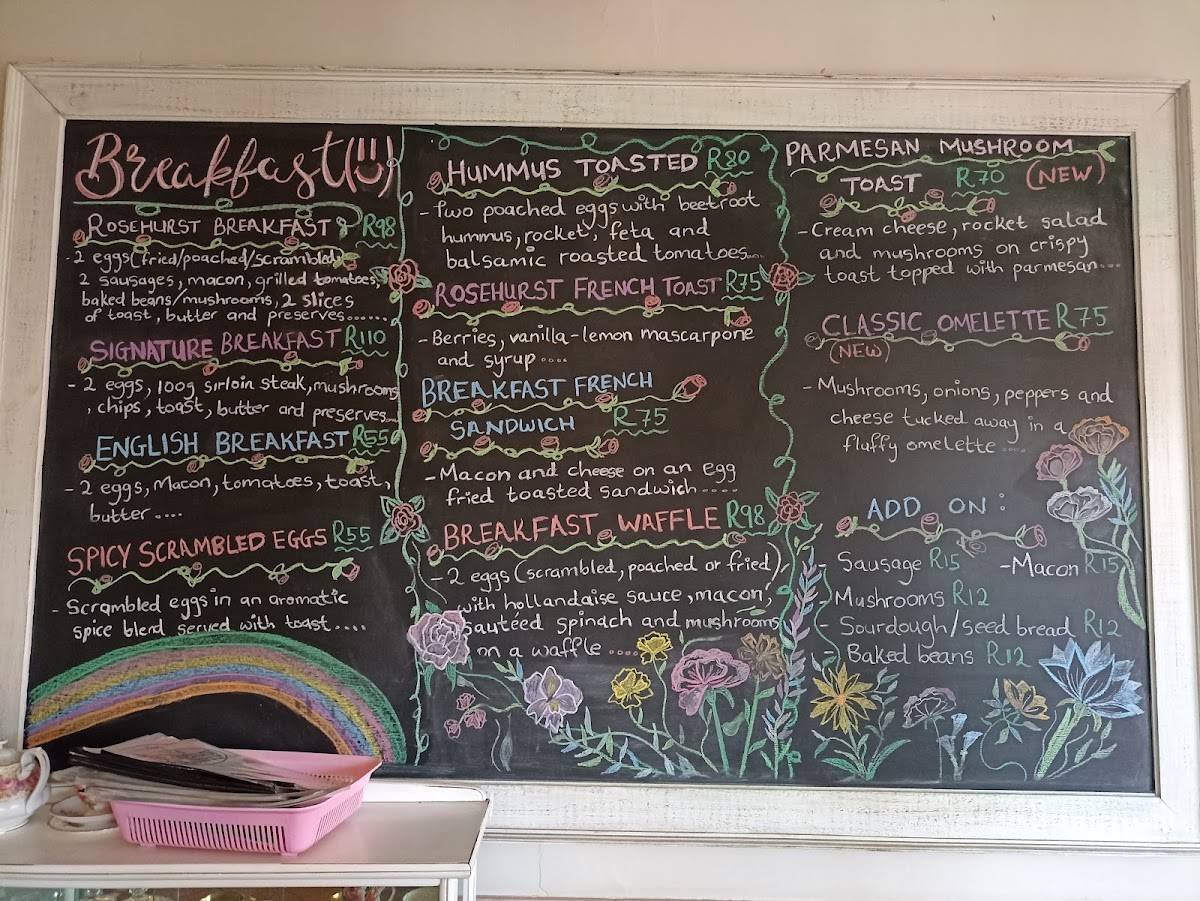 Breakfast
ROSEHURST BREAKFAST R98
- 2 eggs (fried/poached/scrambled)
2 sausages, macon, grilled tomatoes,
baked beans/mushrooms, 2 slices
of toast, butter and preserves......
SIGNATURE BREAKFAST R110
- 2 eggs, 100g sirloin steak, mushrooms
, chips, toast, butter and preserves...
ENGLISH BREAKFAST R55
- 2 eggs, Macon, tomatoes, toast,
butter....
SPICY SCRAMBLED EGGS R55
- Scrambled eggs in an aromatic
spice blend served with toast....
HUMMUS TOASTED R80
- Two poached eggs with beetroot
hummus, rocket, feta and
balsamic roasted tomatoes....
ROSEHURST FRENCH TOAST R75
- Berries, vanilla-lemon mascarpone
and syrup....
BREAKFAST FRENCH
SANDWICH R75
- Macon and cheese on an egg
fried toasted sandwich....
BREAKFAST WAFFLE R98
- 2 eggs (scrambled, poached or fried)
with hollandaise sauce, macon,
sauteed spinach and mushrooms
on a waffle ....
PARMESAN MUSHROOM
TOAST R70 (NEW)
- Cream cheese, rocket salad
and mushrooms on crispy
toast topped with parmesan...
CLASSIC OMELETTE R75
(NEW)
- Mushrooms, onions, peppers and
cheese tucked away in a
fluffy omelette ....
ADD ON:
Sausage R15 - Macon R15
- Mushrooms R12
- Sourdough/seed bread R12
- Baked beans R12